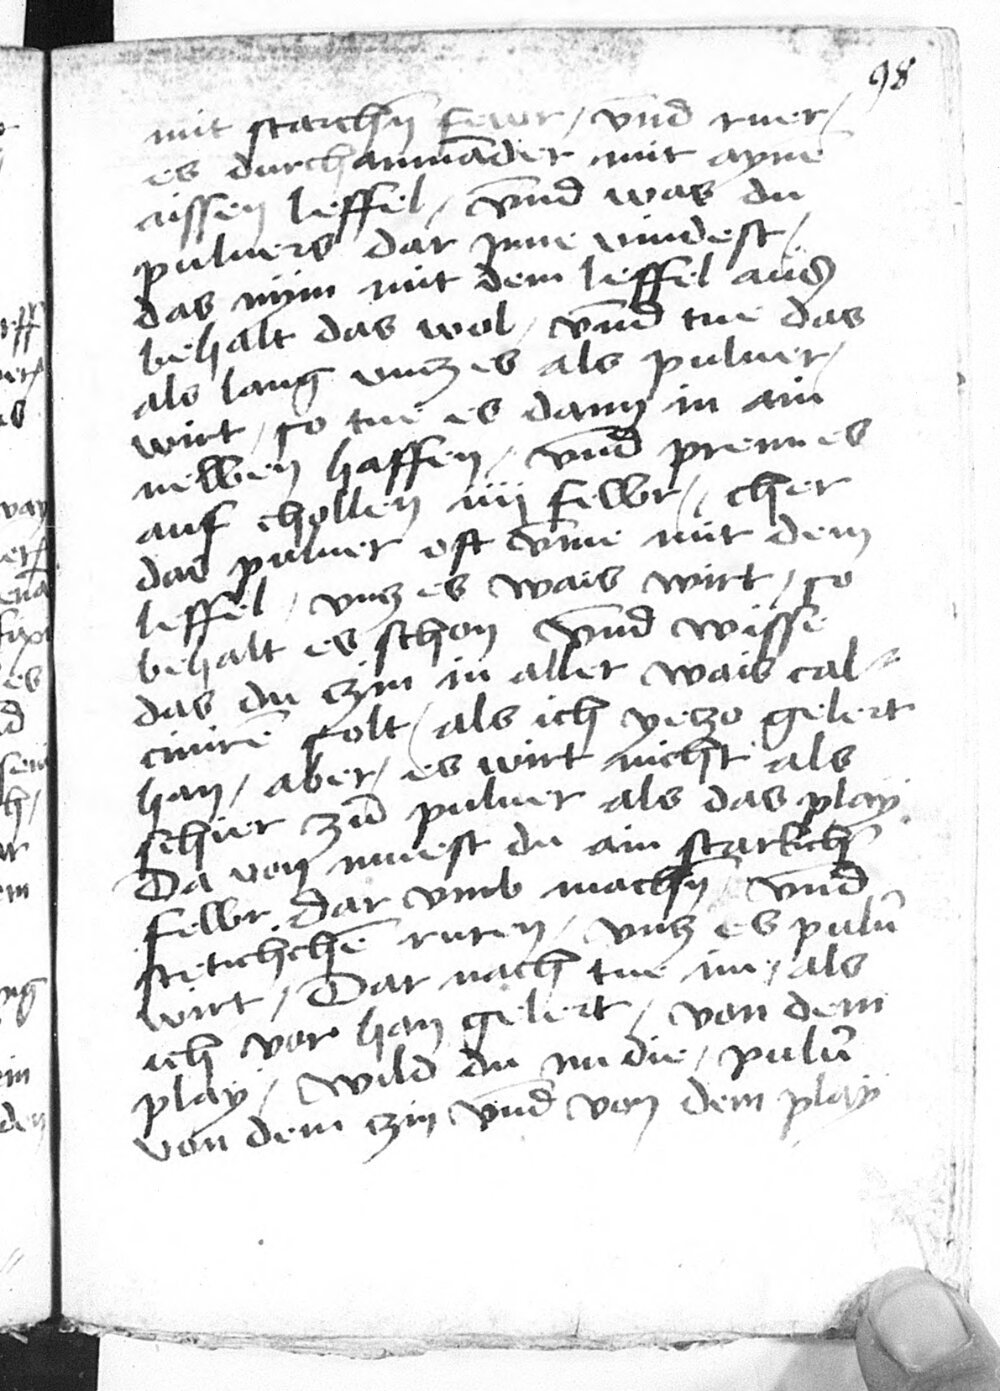 98
mit starchn fewr / vnd ruer /
es durch annander mit ayne
eissen leffel / vnd was du
puluers dar jnne vindest /
das nÿm mit dem leffel aus
behalt das wol / vnd tue das
als lang vncz es als puluer /
wirt / so tue es dann in ain
newen haffen / vnd prenn es
auf chollen iiij fewr / cher
das puluer oft vme mit dem
leffel / vncz es wais wirt / so
behalt es schon vnd wisse
das du czin in aller wais cal-
cinirē solt / als ich yeczo gelert
han / aber / es wirt nicht als
schier zu puluer als das play
Da von muest du ain starkch
fewr dar vmb machn / vnd
stetichchē ruren / vncz es pulu
wirt / Dar nach tue im / als
ich vor han gelert / von dem
play / Wild du nu die / pulu
von dem czin vnd von dem play